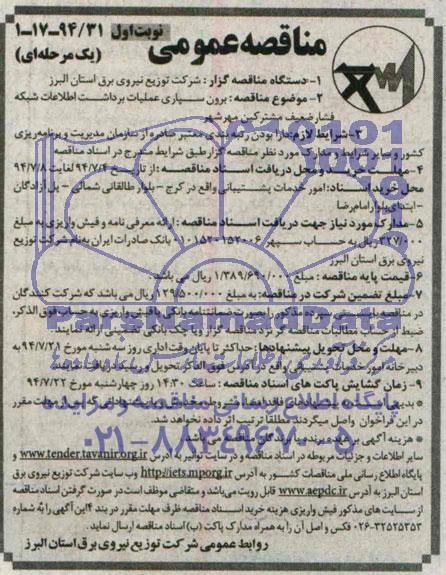 مناقصه عمومی
نوبت اول ۹۴/۳۱-۱۷-۱
(یک مرحله‌ای)
۱- دستگاه مناقصه گزار: شرکت توزیع نیروی برق استان البرز
۲- موضوع مناقصه: برون سپاری عملیات برداشت اطلاعات شبکه
فشار ضعیف مشترکین مهرشهر
۳- شرایط لازم: دارا بودن رتبه بندی معتبر صادره از سازمان مدیریت و برنامه‌ریزی
کشور و سایر شرایط و مدارک مورد نظر مناقصه گزار طبق شرایط مندرج در اسناد مناقصه
۴- مهلت خرید و محل دریافت اسناد مناقصه: از تاریخ ۹۴/۷/۴ لغایت ۹۴/۷/۸
محل خرید اسناد: امور خدمات پشتیبانی واقع در کرج - بلوار طالقانی شمالی - پل آزادگان
- ابتدای بلوار امامرضا
۵- مدارک مورد نیاز جهت دریافت اسناد مناقصه: ارائه معرفی نامه و فیش واریزی به مبلغ
۳۲۷/۰۰۰ ریال به حساب سپهر ۰۱۰۱۵۲۰۱۵۲۰۰۶ بانک صادرات ایران به نام شرکت توزیع
نیروی برق استان البرز
۶- قیمت پایه مناقصه: مبلغ ۱/۳۸۹/۶۹۰/۰۰۰ ریال می باشد.
۷- مبلغ تضمین شرکت در مناقصه: به مبلغ ۱۲۹/۵۰۰/۰۰۰ ریال می باشد که شرکت کنندگان
در مناقصه بایستی سپرده مذکور را بصورت ضمانتنامه بانکی یا فیش واریزی به حساب فوق الذکر،
ضبط از حساب مطالبات مناقصه گر نزد مناقصه گزار و یا چک بانکی تضمینی ارائه نمایند.
۸- مهلت و محل تحویل پیشنهادها: حداکثر تا پایان وقت اداری روز سه شنبه مورخ ۹۴/۷/۲۸ به
دبیرخانه امور خدمات پشتیبانی واقع در آدرس فوق الذکر تحویل و رسید دریافت نمایند.
۹- زمان گشایش پاکت های اسناد مناقصه: ساعت ۱۴:۳۰ روز چهارشنبه مورخ ۹۴/۷/۲۲
* بدیهی است به پیشنهادهای فاقد امضاء، مشروط، مخدوش و پیشنهاداتی که بعد از مهلت مقرر
در این فراخوان واصل میگردند مطلقا ترتیب اثر داده نخواهد شد.
* هزینه آگهی بر عهده برنده یا برندگان مناقصه می باشد.
سایر اطلاعات و جزئیات مربوطه در اسناد مناقصه و در سایت توانیر به آدرس www.tender.tavanir.org.ir و
پایگاه اطلاع رسانی ملی مناقصات کشور به آدرس http://iets.mporg.ir وب سایت شرکت توزیع نیروی برق
استان البرز به آدرس www.aepdc.ir قابل رویت می‌باشد و متقاضی موظف است در صورت گرفتن اسناد مناقصه
از سایت های مذکور فیش واریزی هزینه خرید اسناد مناقصه ظرف مهلت مقرر در بند ۴ این آگهی را به شماره
۰۲۶-۳۲۵۲۵۳۵۳ فکس و اصل آن را به همراه مدارک پاکت (ب) اسناد مناقصه ارسال نماید.
روابط عمومی شرکت توزیع نیروی برق استان البرز
پایگاه اطلاع رسانی مناقصه و مزایده
۰۲۱-۸۸۳۴۹۶۷۰-۵